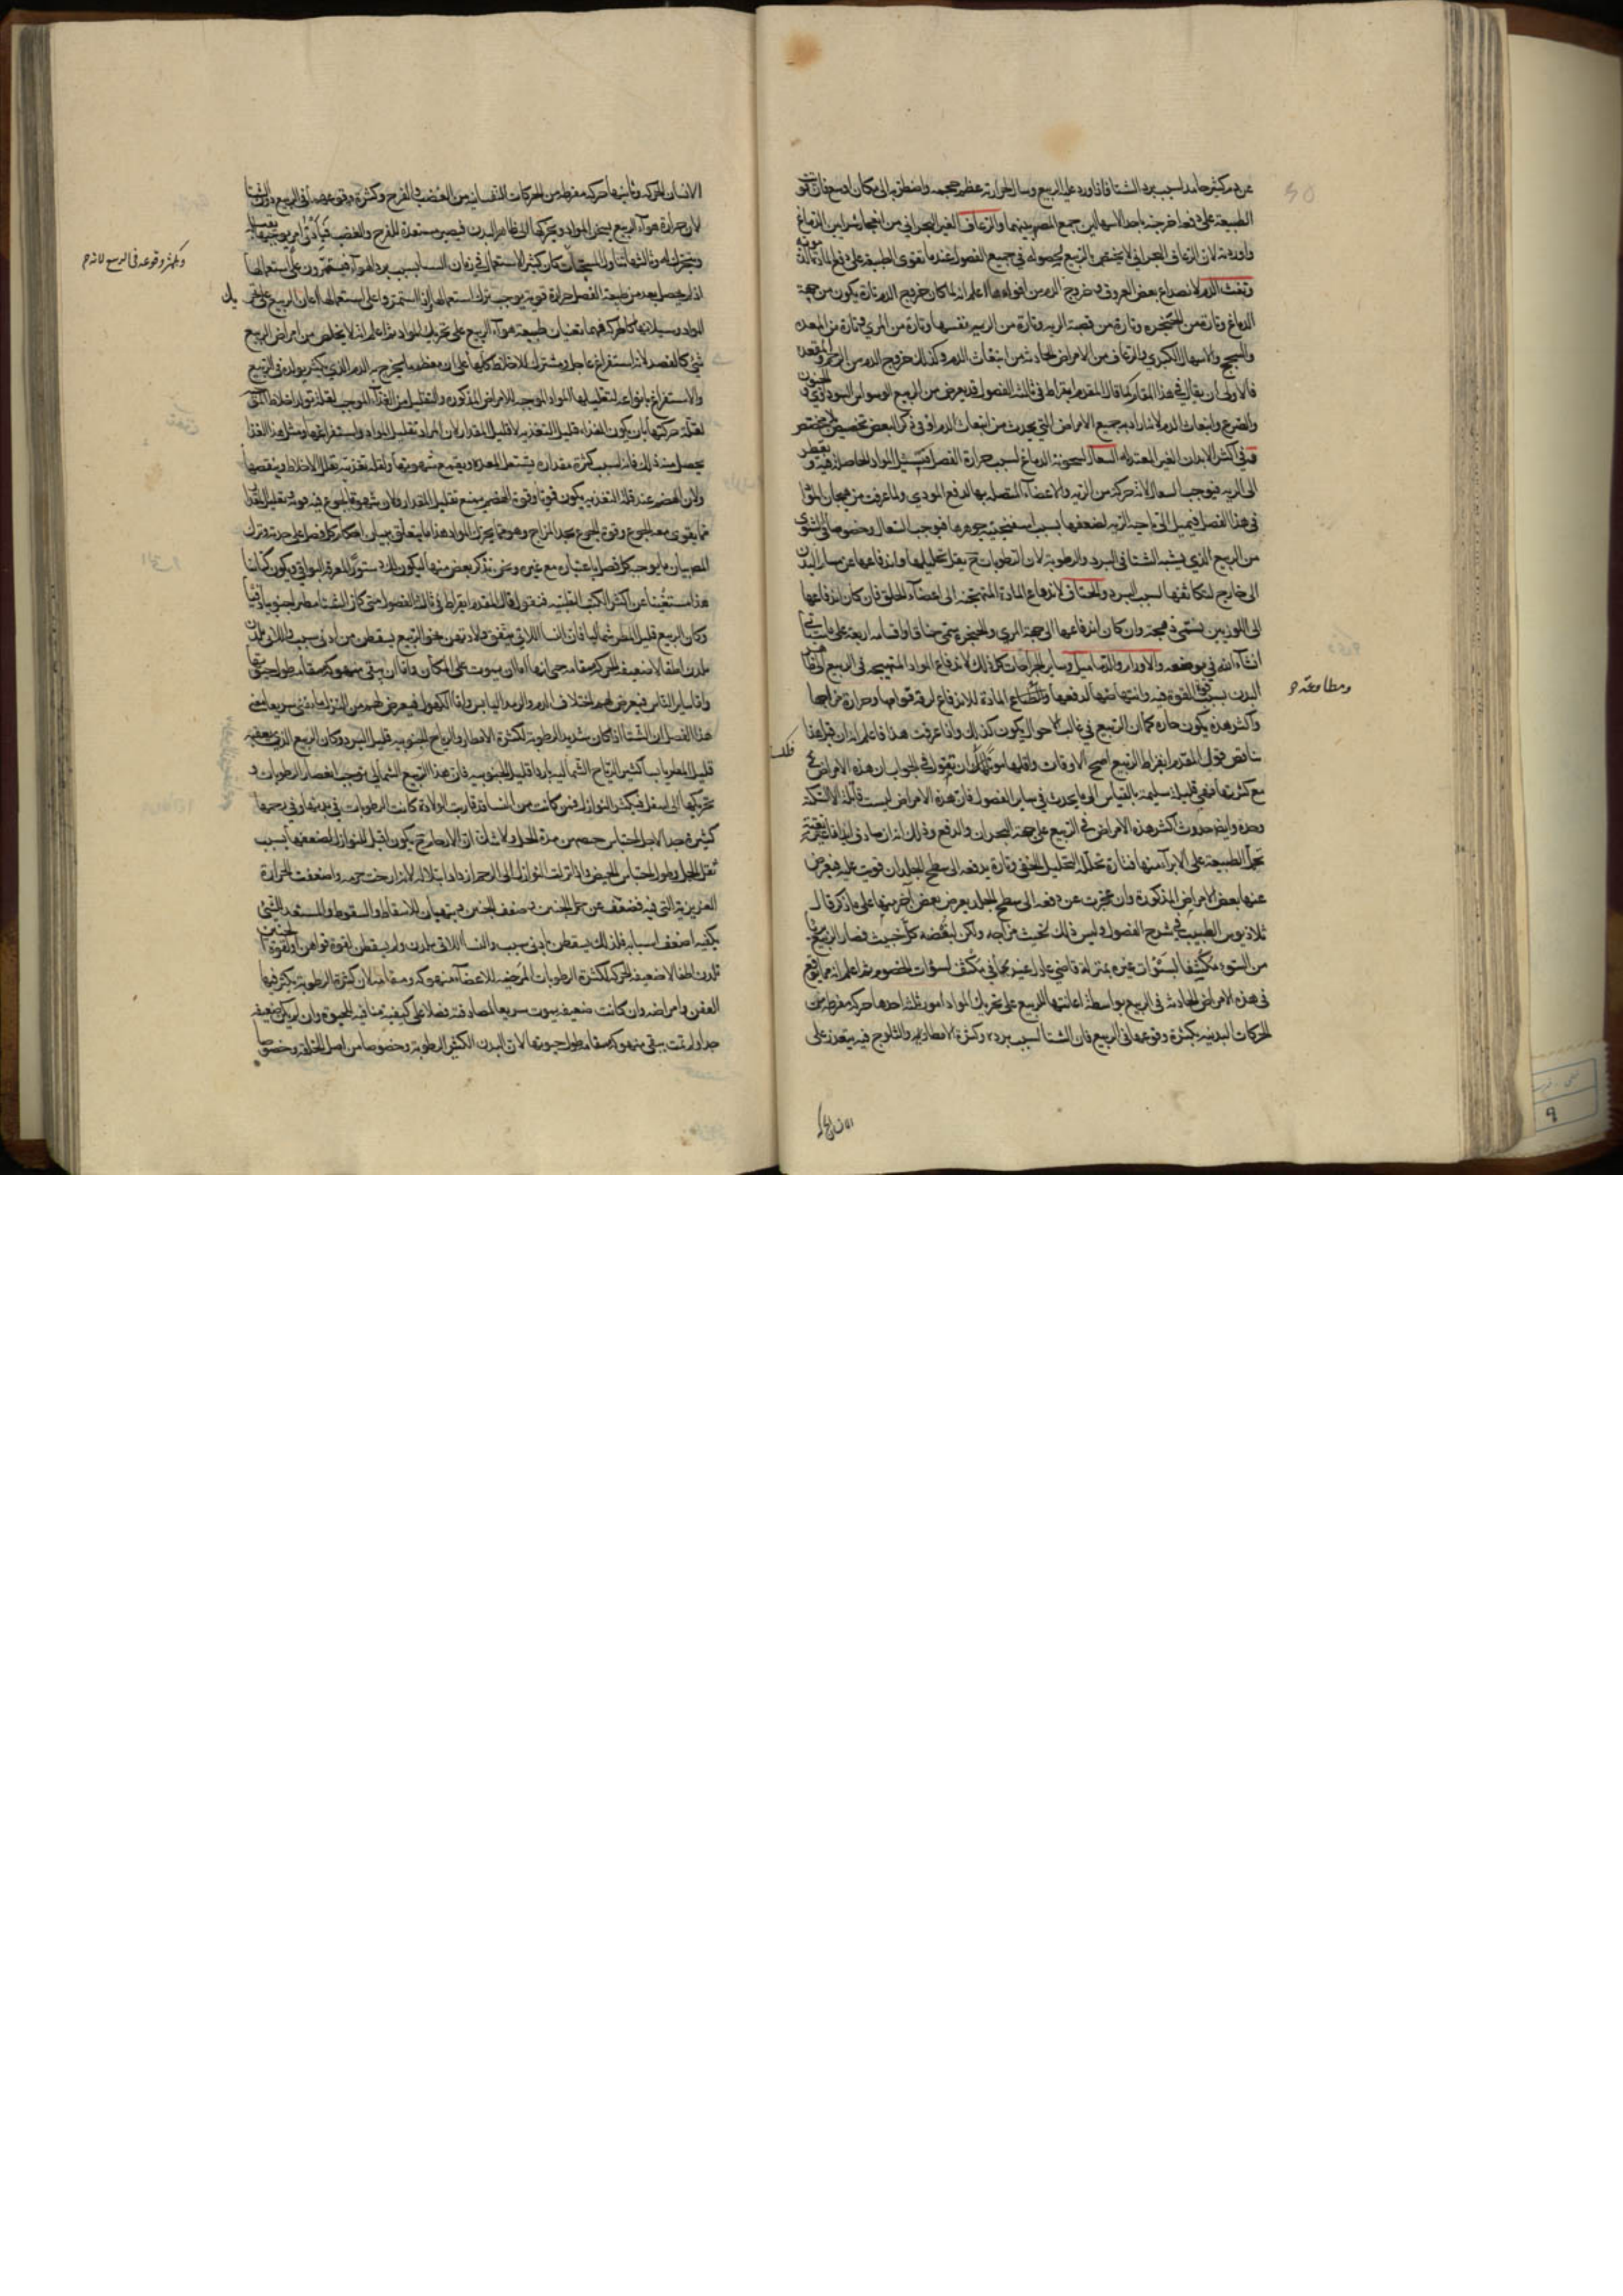 عن دم كثير جامد لسبب برد الشتا فاذا ورد عليه الربيع وسال لحرارته عظم حجمه واضطر به الى مكان اوسع فان
الطبيعة على دفعه اخرجته باحد الاسهالين جمع المصر بينهما والرعاف الغير البحراني من انفجار شرايين الدماغ
واوردته لان الرعاف البحراني لا يختص بالربيع لحصوله في جميع الفصول عندما تقوى الطبيعة على دفع المادة
ونفث الدم لانصداع بعض العروق وخروج الدم من افواهها اعلم انه لما كان خروج الدم تارة يكون من جهة
الدماغ وتارة من الحنجره وتارة من قصبة الريه وتارة من الريه نفسها وتارة من المري وتارة من المعده
والسحج والاسهال الكبدي والرعاف من الامراض الحادثه من انبعاث الدم وكذلك خروج الدم من الرحم والمقعده
فالاولى ان يقال في هذا المقام كما قال المقدم ابقراط في ثالثة الفصول قد يعرض من الربيع الوسواس السوداوي والجنون
والصرع وانبعاث الدم لاشاراته جميع الامراض التي يحدث من انبعاث الدم او في ذكر البعض تخصيص
في اكثر الابدان الغير المعتدله السعال لسخونة الدماغ لسبب حرارة الفصل فتسيل المواد الحاصله فيه وتقطر
الى الريه فيوجب السعال لانه حركه من الريه والاعضاء المتصله بها لدفع المودي ولما عرفت من هيجان المواد
في هذا الفصل فيميل الى ناحية الريه لضعفها بسبب اسفنجية جوهرها فيوجب السعال وخصوصا في الشتوي
من الربيع الذي يشبه الشتا في البرد والرطوبة لان الرطوبات ح يقل تحليلها واندفاعها عن مسام البدن
الى خارج لتكاثفها لسبب البرد والخناق لاندفاع المادة المتهيجه الى اعضاء الحلق فان كان اندفاعها
الى اللوزتين يسمى ذبحة وان كان اندفاعها الى جهة المري والحنجره يسمى خناقا واقسامه اربعة على ما سياتي
انشاء الله في موضعه والاورام والدماميل وساير الجراحات كل ذلك لاندفاع المواد المتهيجه في الربيع
البدن بسبب قوة القوة فيه وانتهاضها لدفعها والطباع المادة للاندفاع لرقة قوامها وحرارة مزاجها
ومطاوعة
واكثر هذه يكون حاره كما ان الربيع في غالب الاحوال يكون كذلك واذا عرفت هذا فاعلم انه ان قيل هذا
يناقض قول المقدم ابقراط الربيع اصح الاوقات واقلها موتا قلنا ان تقول في الجواب ان هذه الامراض
مع كثرتها فهي قليلة سليمة بالقياس الى ما يحدث في ساير الفصول فان هذه الامراض ليست قاتلة الا السكتة
وحده وايضا حدوث اكثر هذه الامراض في الربيع على جهة البحران والدفع وذلك انه ان صادف ابدانا نقية
تحمل الطبيعة على الابراء منها فتارة تحلله التحليل الخفي وتارة يدفعه الى سطح الجلد ان قويت عليه فيعرض
عنها بعض الامراض المذكورة وان عجزت عن دفعه الى سطح الجلد يعرض بعض اخر منها على ما ذكر قال
ثلاذيوس الطبيب في شرح الفصول وليس ذلك لخبث مزاجه ولكن لبغضه كل خبيث فصار الربيع
من السوء مكشفا لسوات غيره بمنزلة قاضي عادل غير محابي يكشف لسوات الخصوم ثم اعلم انه مما يوقع
في هذه الامراض الحادثه في الربيع بواسطة اعانتها للربيع على تحريك المواد امور ثلثة احدها حركه مفرطه من
الحركات البدنيه بكثرة وقوعها في الربيع فان الشتا لسبب برده وكثرة الامطار فيه والثلوج فيه يتعذر على
الانسان
الانسان الحركه وثانيها حركه مفرطه من الحركات النفسانيه من الغضب والفرح وكثرة وقوعها في الربيع دون الشتا
لان حرارة هواء الربيع يسخن المواد ويحركها الى ظاهر البدن فيصير مستعدة للفرح والغضب فبادنى امر يوجبهما
ويكثر وقوعه في الربيع لانه
ويتحرك له وثالثها تناول المسخنات كان كثير الاستعمال في زمان الشتا بسبب برد الهواء فيستمرون على استعمالها
اذ لم يحصل بعد من طبيعة الفصل حرارة قوية يوجب ترك استعمالها
المواد وسيلانها كالحركه فهما تعينان طبيعة هواء الربيع على تحريك المواد ثم اعلم انه لا يخلص من امراض الربيع
شئ كالفصد لانه استفراغ عاجل ومشترك للاخلاط كلها على ان معظم ما يخرج به الدم الذي يكثر تولده في الربيع
والاستفراغ بانواعه لتقليلها المواد الموجبه للامراض المذكوره والتقليل من الغذاء الموجب لقلة تولد اخلاط
لقلة حركتها بان يكون الغذاء قليل التغذيه لا قليل المقدار لان المراد تقليل المواد واستفراغها ومثل هذا الغذا
يحصل منه ذلك فانه لسبب كثرة مقداره يشتغل المعده ويقمع شهوتها ولقلة تغذيته تقلل الاخلاط وينقصها
ولان الهضم عند قلة التغذيه يكون قويا وقوة الهضم يمنع تقليل المقدار ولان شهوة الجوع فيه قوية
مما يقوى معه الجوع وقوة الجوع يحد المزاج وهو مما يحرك المواد هذا ما يتعلق ببيان احكام كل فصل على حدته وترك
المص بيان ما يوجب كل فصل باعتباره مع غيره ونحن نذكر بعض منها ليكون لك دستورا لمعرفة البواقي ويكون كتابنا
هذا مستغنيا عن اكثر الكتب الطبيه فنقول قال المقدم ابقراط في ثالثة الفصول متى كان الشتا مطيرا جنوبيا دفيا
وكان الربيع قليل المطر شماليا فان النسا اللاتي يتفق ولادتهن نحو الربيع يسقطن من ادنى سبب واللاتي يلدن
يلدن اطفالا ضعيفة الحركه مسقامه حتى انها اما ان يموت على المكان واما ان يبقى منهوكه مسقامه طول حيوتها
واما ساير الناس فيعرض لهم اختلاف الدم والرمد اليابس واما الكهول فيعرض لهم من النزل ما يفنى سريعا
هذا الفصل ان الشتا اذا كان شديد الرطوبة لكثرة الامطار والرياح الجنوبيه قليل البرد وكان الربيع الذي يعقبه
قليل المطر يابسا كثير الرياح الشماليه باردا قليل الجنوبيه فان هذا الربيع الشمالي يوجب انعصار الرطوبات و
تحركها الى اسفل فيكثر النوازل فمن كانت من النسا قد قاربت الولادة كانت الرطوبات في بدنها وفي رحمها
كثيرة جدا لاجل احتباس حيضهن مدة الحمل ولا شك ان الارحام ح يكون اقبل للنوازل لضعفها بسبب
ثقل الحمل وطول احتباس الحيض واذا نزلت النوازل الى الرحم ازداد ابتلاله لانه ارخت جرمه واضعفت الحرارة
الغريزية التي فيه فضعف عن حمل الجنين وضعف الجنين ويتهيان للاسقاط والسقوط والمستعد للشئ
يكفيه اضعف اسبابه فلذلك يسقطن بادنى سبب والنسا اللاتي يلدن ولم يسقطن لقوة قواهن او لقوة الجنين
تلدن اطفالا ضعيفة الحركه لكثرة الرطوبات المرخيه للاعضاء منهوكه ومسقامه لان كثرة الرطوبة يكثر فيها
العفن وامراضه وان كانت ضعيفه يموت سريعا لمصادفته فضلا على كيفية منافيه للحيوة وان لم يكن ضعيفه
جدا ولم تمت يبقى منهوكه مسقامه طول حيوتها لان البدن الكثير الرطوبة وخصوصا من اصل الخلقه وخصوصا